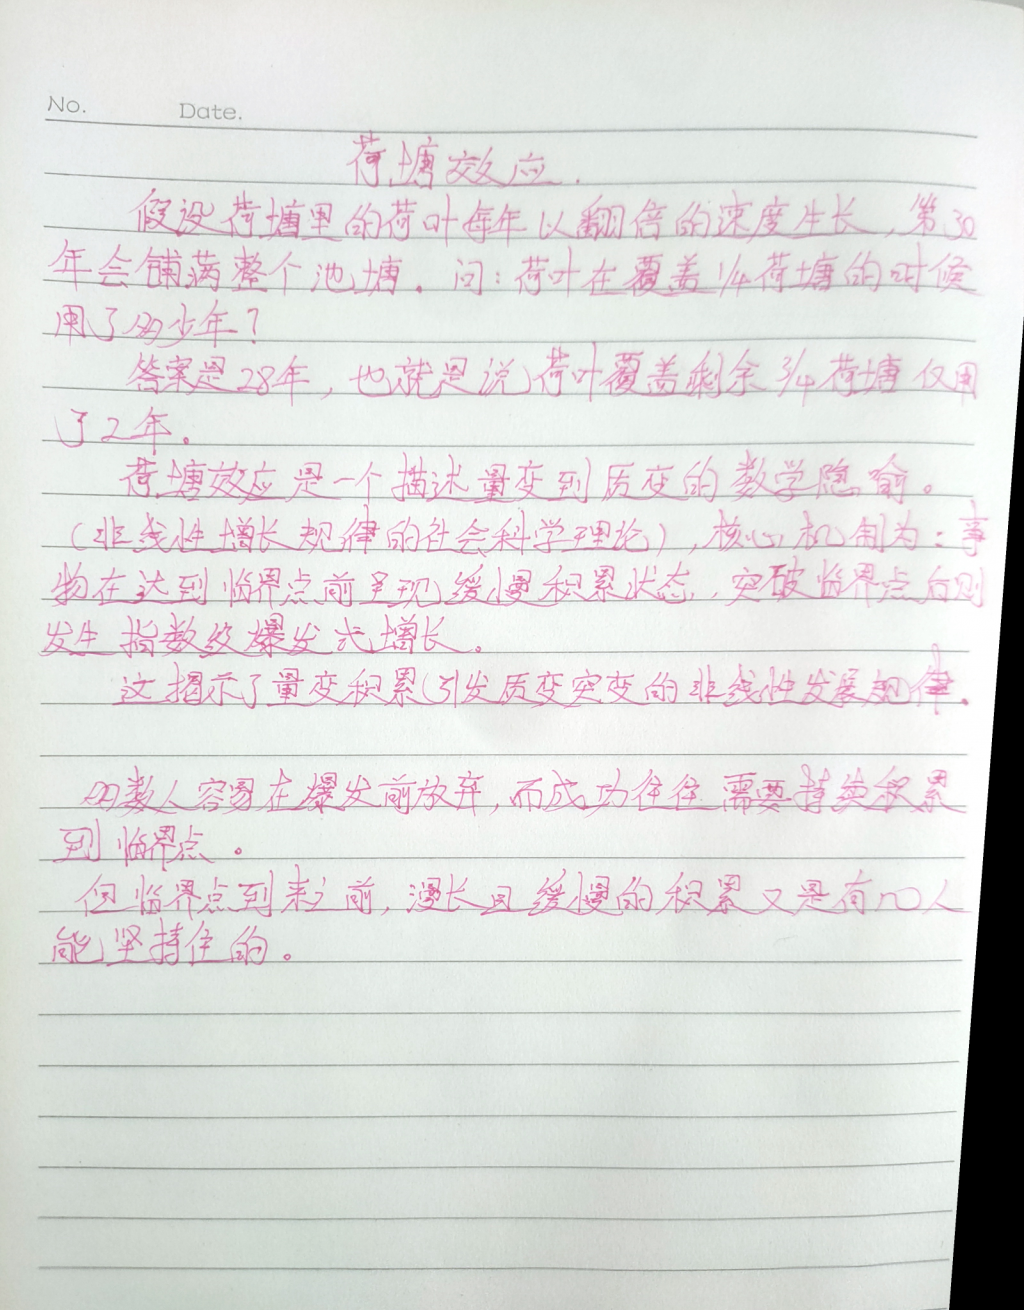 No. Date.
荷塘效应.
假设荷塘里的荷叶每年以翻倍的速度生长,第30
年会铺满整个池塘.问:荷叶在覆盖1/4荷塘的时候
用了多少年?
答案是28年,也就是说荷叶覆盖剩余3/4荷塘仅用
了2年。
荷塘效应是一个描述量变到质变的数学隐喻。
(非线性增长规律的社会科学理论),核心机制为:事
物在达到临界点前呈现缓慢积累状态,突破临界点后则
发生指数级爆发式增长。
这揭示了量变积累引发质变突变的非线性发展规律.
多数人容易在爆发前放弃,而成功往往需要持续积累
到临界点。
但临界点到来之前,漫长且缓慢的积累又是有几人
能坚持住的。